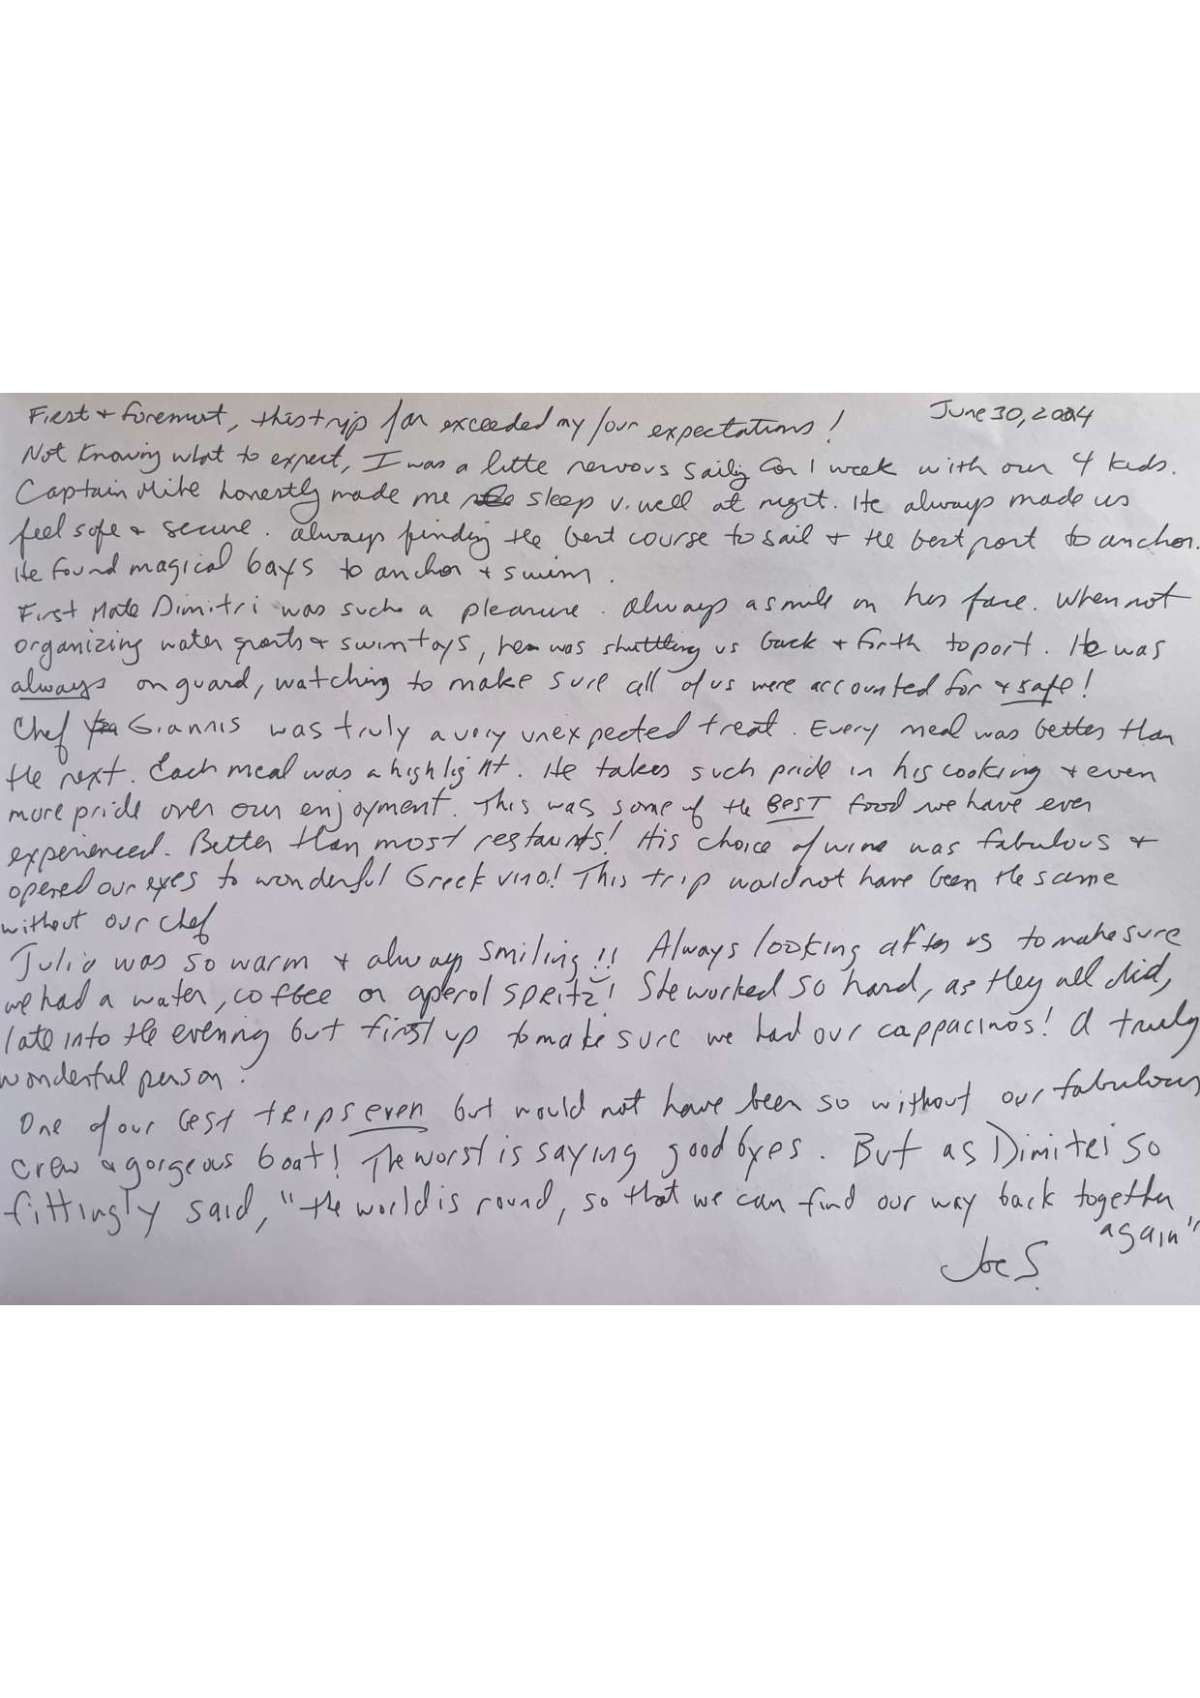 First + foremost, this trip far exceeded my/our expectations! June 30, 2024
Not knowing what to expect, I was a little nervous sailing for 1 week with our 4 kids.
Captain Mike honestly made me sleep v. well at night. He always made us
feel safe + secure. always finding the best course to sail + the best port to anchor.
He found magical bays to anchor + swim.
First Mate Dimitri was such a pleasure. always a smile on his face. When not
organizing water sports + swim toys, he was shuttling us back + forth to port. He was
always on guard, watching to make sure all of us were accounted for + safe!
Chef Giannis was truly a very unexpected treat. Every meal was better than
the next. Each meal was a highlight. He takes such pride in his cooking + even
more pride over our enjoyment. This was some of the BEST food we have ever
experienced. Better than most restaurants! His choice of wine was fabulous +
opened our eyes to wonderful Greek vino! This trip would not have been the same
without our chef
Julia was so warm + always smiling!! Always looking after us to make sure
we had a water, coffee or aperol spritz! She worked so hard, as they all did,
late into the evening but first up to make sure we had our cappacinos! A truly
wonderful person.
One of our best trips ever but would not have been so without our fabulous
crew + gorgeous boat! The worst is saying goodbyes. But as Dimitri so
fittingly said, "the world is round, so that we can find our way back together
again"
Joe S.